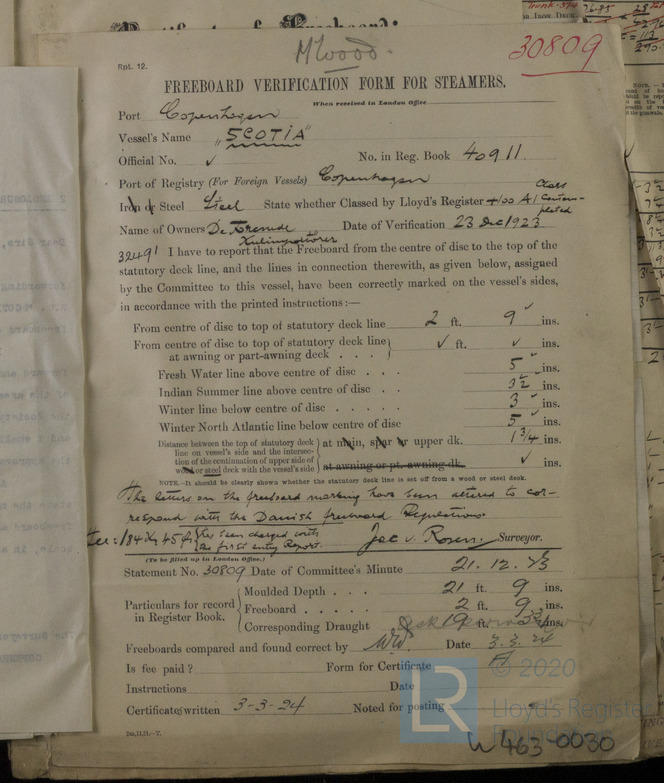 30809
RPT. 12.
FREEBOARD VERIFICATION FORM FOR STEAMERS.
When received in London Office
Port Copenhagen
Vessel's Name "SCOTIA"
Official No. ✓ No. in Reg. Book 40911.
Port of Registry (For Foreign Vessels) Copenhagen
Iron or Steel Steel State whether Classed by Lloyd's Register +100 A1 Class Contemplated
Name of Owners De Forenede Kulimportører Date of Verification 23 Dec 1923
32491 I have to report that the Freeboard from the centre of disc to the top of the
statutory deck line, and the lines in connection therewith, as given below, assigned
by the Committee to this vessel, have been correctly marked on the vessel's sides,
in accordance with the printed instructions:—
From centre of disc to top of statutory deck line 2 ft. 9 ins.
From centre of disc to top of statutory deck line at awning or part-awning deck . . . ✓ ft. ✓ ins.
Fresh Water line above centre of disc . . . 5 ins.
Indian Summer line above centre of disc . . 3½ ins.
Winter line below centre of disc . . . . 3 ins.
Winter North Atlantic line below centre of disc 5 ins.
Distance between the top of statutory deck line on vessel's side and the intersection of the continuation of upper side of wood or steel deck with the vessel's side
at main, spar or upper dk. 1 3/4 ins.
at awning or pt. awning dk. ✓ ins.
NOTE.—It should be clearly shown whether the statutory deck line is set off from a wood or steel deck.
The letters on the freeboard marking have been altered to cor-
respond with the Danish freeboard Regulations.
Fee: 184 Kr 45 has been charged with
the first entry Report.
Surveyor.
(To be filled up in London Office.)
Statement No. 30809 Date of Committee's Minute 21. 12. 23
Particulars for record in Register Book.
Moulded Depth . . . 21 ft. 9 ins.
Freeboard . . . . . 2 ft. 9 ins.
Corresponding Draught 19 ft. ins.
Freeboards compared and found correct by WW Date 3. 3. 24
Is fee paid? Form for Certificate A
Instructions Date
Certificate written 3-3-24 Noted for posting
© 2020
LR
Lloyd's Register
Foundation
W463-0030